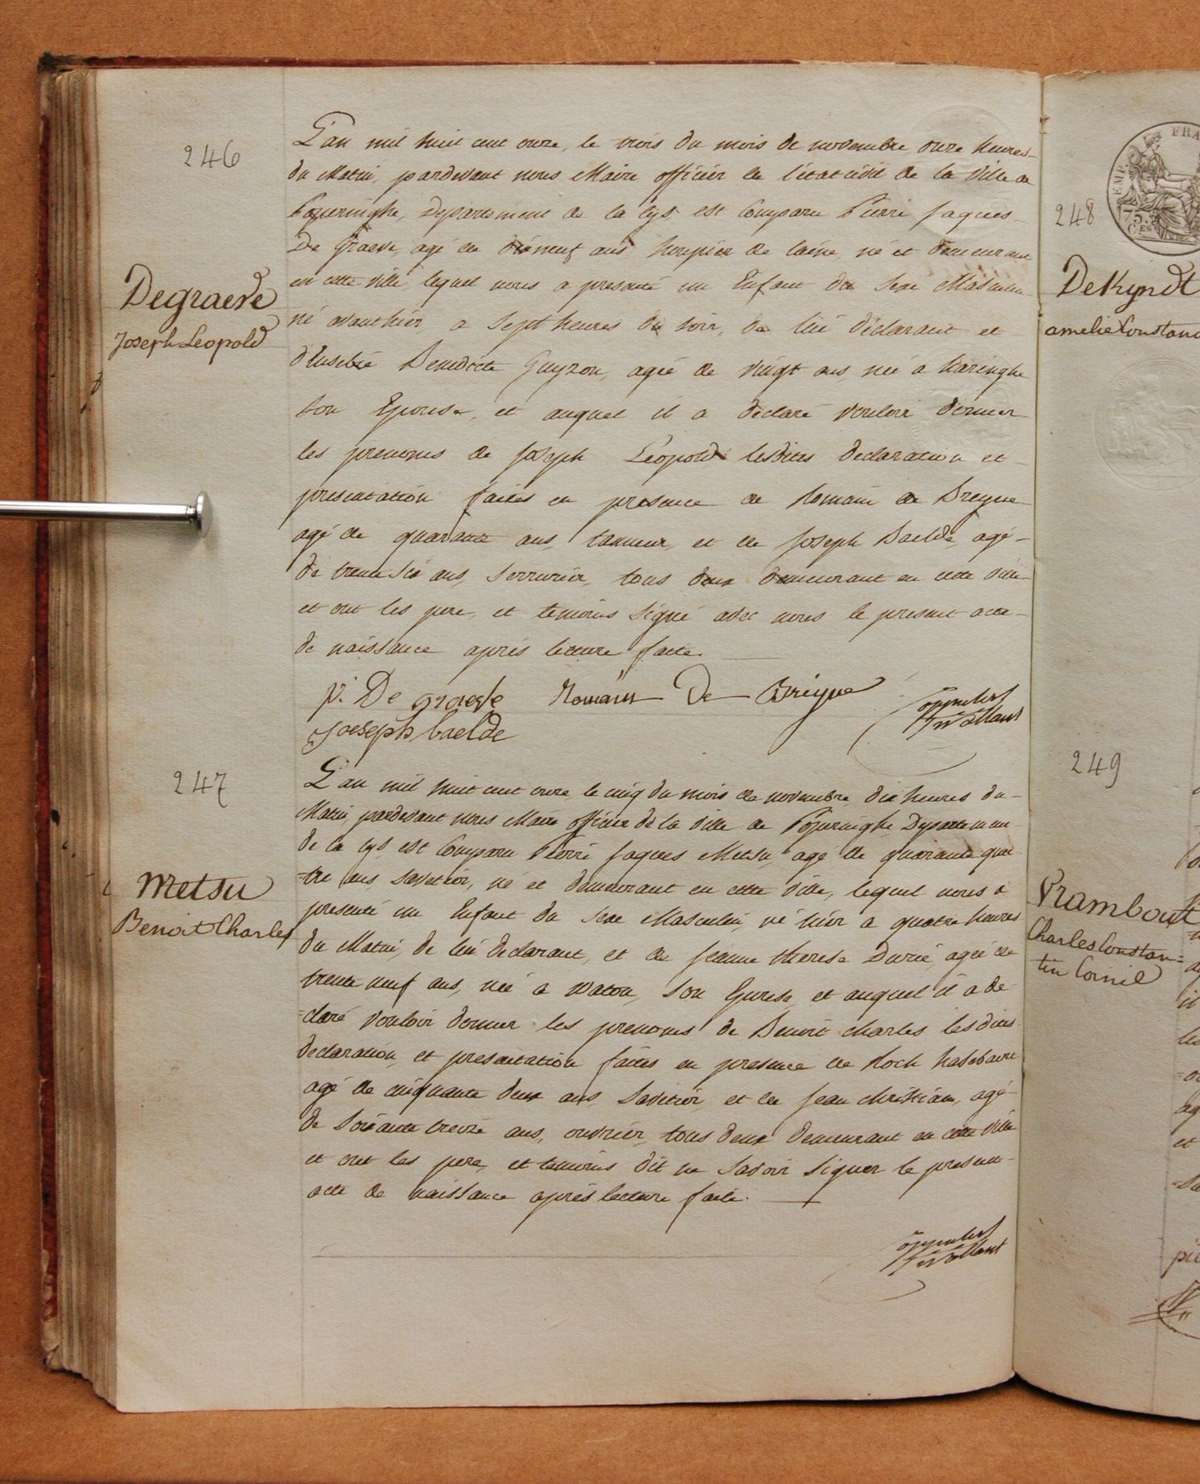 246
L'an mil huit cent onze, le trois du mois de novembre onze heures
du Matin, pardevant nous Maire officier de l'état civil de la Ville de
Poperinghe, Département de la Lys est Comparu Pierre Jaques
De Graeve, agé de ans houpier de laine né et demeurant
en cette ville, lequel nous a presenté un Enfant du Sexe Masculin
né avanthier, a Sept heures du Soir, de lui déclarant et
Degraeve
Joseph Leopold
d'Eusebie Benedicte Guyzon, agée de vingt ans, née a
Son Epouse, et auquel il a déclaré vouloir donner
les prenoms de Joseph Leopold lesdites declaration et
presentation faites en presence de Romain de Breyne
agé de quarante ans, tanneur, et de Joseph Baelde, agé
de trente six ans, Serrurier, tous deux demeurant en cette ville
et ont les pere, et temoins Signé avec nous le present acte
de naissance après lecture faite.
p: De graeve Romain De Breyne
Joeseph baelde
247
L'an mil huit cent onze, le cinq du mois de novembre dix heures du
Matin, pardevant nous Maire officier de la Ville de Poperinghe Departement
de la Lys est Comparu Pierre Jaques Metsu, agé de quarante qua
-tre ans Savetier, né et demeurant en cette Ville, lequel nous a
Metsu
Benoit Charles
presenté un Enfant du Sexe Masculin, né hier a quatre heures
du Matin, de lui declarant, et de Jeanne therese Durié, agée de
trente neuf ans, née a Watou, Son Epouse, et auquel il a de
-claré vouloir donner les prenoms de Benoit Charles lesdites
declaration, et presentation faites en presence de Roch
agé de cinquante deux ans, Savetier et de Jean Christiaen, agé
de Soixante treize ans, ouvrier, tous deux demeurant en cette ville
et ont les pere, et temoins dit ne Savoir Signer le present
acte de naissance après lecture faite.
248
DeKyndt
amelie Constanc
249
Prambout
Charles Constan-
tin Cornil
EMP. FRA
75.